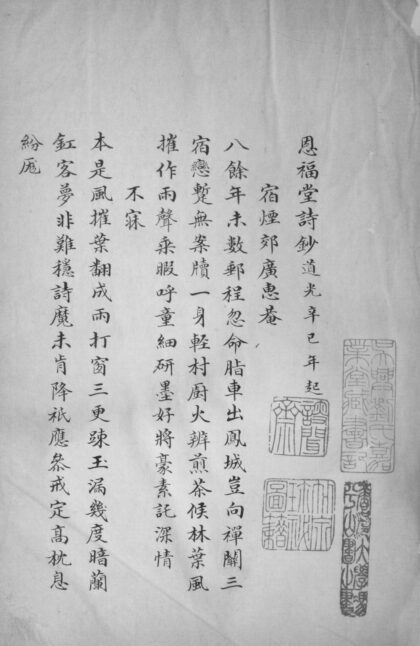 恩福堂詩鈔道光辛巳年起
宿煙郊廣惠菴
八餘年未數郵程忽命脂車出鳳城豈向禪關三
宿戀蹔無案牘一身輕村廚火辨煎茶候林葉風
摧作雨聲乘暇呼童細研墨好將豪素託深情
不寐
本是風摧葉翻成雨打窗三更踈玉漏幾度暗蘭
釭客夢非難穩詩魔未肯降祇應叅戒定高枕息
紛厖
吳興劉氏嘉
業堂藏書記